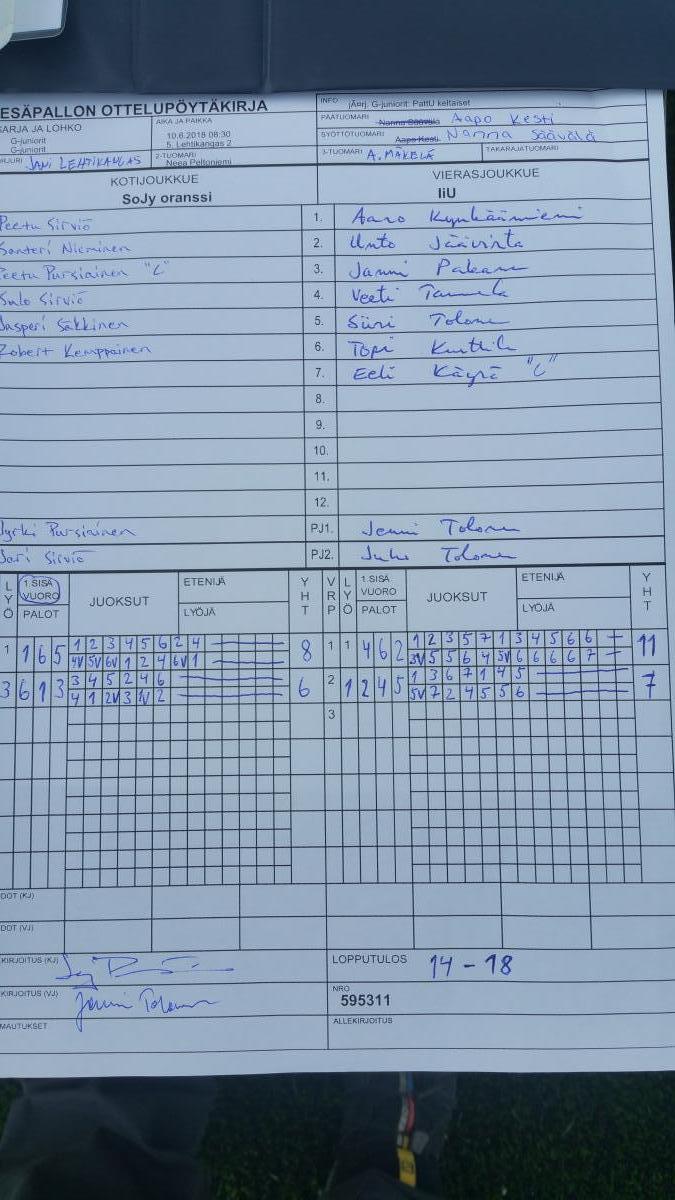 ESÄPALLON OTTELUPÖYTÄKIRJA
INFO jÃ¤rj. G-juniorit: PattU keltaiset
SARJA JA LOHKO
G-juniorit
G-juniorit
AIKA JA PAIKKA
10.6.2018 08:30
5. Lehtikangas 2
PÄÄTUOMARI Nanna Säävälä Aapo Kesti
SYÖTTÖTUOMARI Aapo Kesti Nanna Säävälä
JANI LEHTIKANGAS
2-TUOMARI
Neea Peltoniemi
3-TUOMARI A. MÄKELÄ
TAKARAJATUOMARI
KOTIJOUKKUE
SoJy oranssi
VIERASJOUKKUE
IiU
Peetu Sirviö 1. Aaro Kynkäänniemi
Santeri Nieminen 2. Unto Jäävirta
Peetu Pursiainen "C" 3. Janni
Sulo Sirviö 4. Veeti
Jasperi Säkkinen 5. Siiri Tolonen
Robert Kemppainen 6. Topi Kurttila
7. Eeli Käyrä "C"
8.
9.
10.
11.
12.
Jyrki Pursiainen PJ1. Jenni Tolonen
Jari Sirviö PJ2. Juho Tolonen
LYÖ 1.SISÄ VUORO PALOT JUOKSUT ETENIJÄ LYÖJÄ YHT VRP LYÖ 1.SISÄ VUORO PALOT JUOKSUT ETENIJÄ LYÖJÄ YHT
1 1 6 5 1 2 3 4 5 6 2 4 8 1 1 4 6 2 1 2 3 5 7 1 3 4 5 6 6 11
4V 5V 6V 1 2 4 6V 1 3V 5 5 6 4 5V 6 6 6 6 7
3 6 1 3 3 4 5 2 4 6 6 2 1 2 4 5 1 3 6 7 1 4 5 7
4 1 2V 3 1V 2 5V 7 2 4 5 5 6
3
DOT (KJ)
DOT (VJ)
KIRJOITUS (KJ)
LOPPUTULOS 14 - 18
KIRJOITUS (VJ) Jenni Tolonen
NRO
595311
MAUTUKSET
ALLEKIRJOITUS